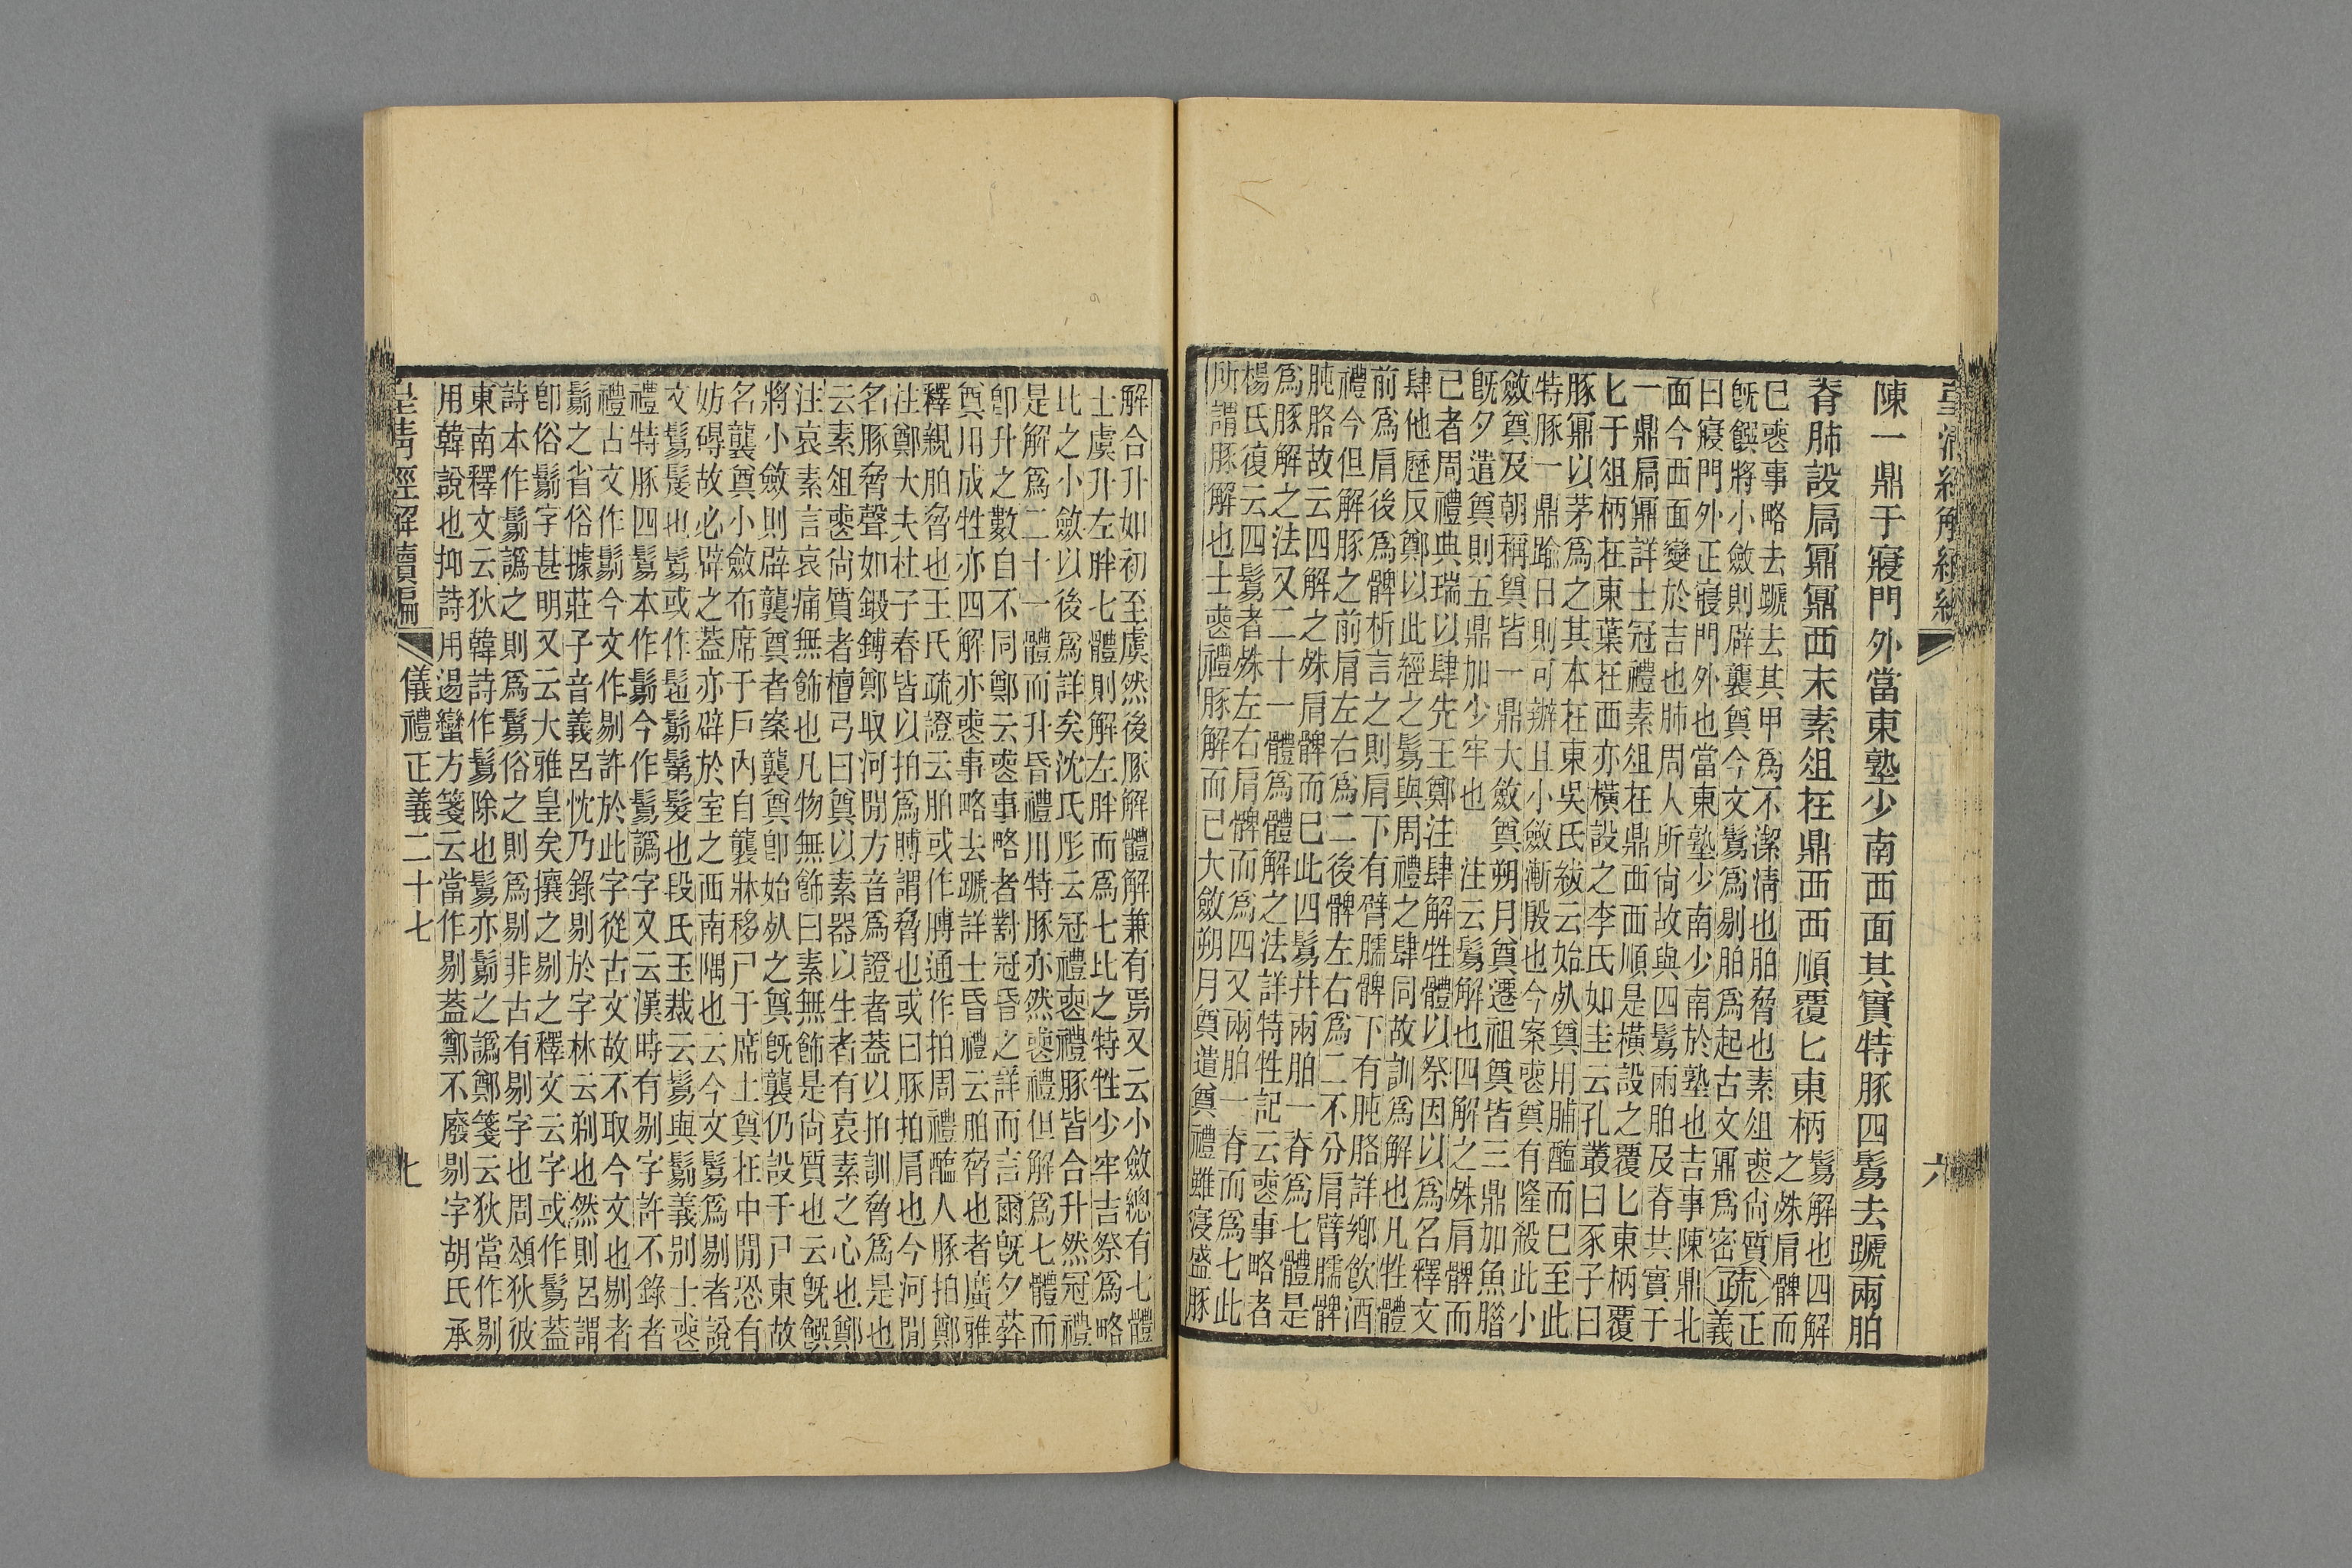 陳一鼎于寢門外當東塾少南西面其實特豚四鬄去蹏兩胉
脊肺設扃鼏鼏西末素俎在鼎西西順覆匕東柄
鬄解也四解
之殊肩髀而
已喪事略去蹏去其甲爲不潔清也胉脅也素俎喪尚質
旣饌將小斂則辟襲奠今文鬄爲剔胉爲迫古文鼏爲密
疏
正
義
曰寢門外正寢門外也當東塾少南少南於塾也吉事陳鼎北
面今西面變於吉也肺周人所尚故與四鬄兩胉及脊共實于
一鼎扃鼏詳士冠禮素俎在鼎西面順是橫設之覆匕東柄覆
匕于俎柄在東葉在西亦橫設之李氏如圭云孔叢曰豕子曰
豚鼏以茅爲之其本在東吳氏紱云始死奠用脯醢而已至此
特豚一鼎踰日則可辦且小斂漸殷也今案喪奠有隆殺此小
斂奠及朝稱奠皆一鼎大斂奠朔月奠遷祖奠皆三鼎加魚腊
旣夕遣奠則五鼎加少牢也　注云鬄解也四解之殊肩髀而
已者周禮典瑞以肆先王鄭注肆解牲體以祭因以爲名釋文
肆他歷反鄭以此經之鬄與周禮之肆同故訓爲解也凡牲體
前爲肩後爲髀析言之則肩下有臂臑髀下有肫胳詳鄉飮酒
禮今但解豚之前肩左右爲二後髀左右爲二不分肩臂臑髀
肫胳故云四解之殊肩髀而已此四鬄幷兩胉一脊爲七體是
爲豚解之法又二十一體爲體解之法詳特牲記云喪事略者
楊氏復云四鬄者殊左右肩髀而爲四又兩胉一脊而爲七此
所謂豚解也士喪禮豚解而已大斂朔月奠遣奠禮雖寖盛豚
六
解合升如初至虞然後豚解體解兼有焉又云小斂總有七體
士虞升左胖七體則解左胖而爲七比之特牲少牢吉祭爲略
比之小斂以後爲詳矣沈氏彤云冠禮喪禮豚皆合升然冠禮
是解爲二十一體而升昏禮用特豚亦然喪禮但解爲七體而
卽升之數自不同鄭云喪事略者對冠昏之詳而言爾旣夕葬
奠用成牲亦四解亦喪事略去蹏詳士昏禮云胉脅也者廣雅
釋親胉脅也王氏疏證云胉或作膊通作拍周禮醢人豚拍鄭
注鄭大夫杜子春皆以拍爲膊謂脅也或曰豚拍肩也今河閒
名豚脅聲如鍛鎛鄭取河閒方音爲證者蓋以拍訓脅爲是也
云素俎喪尚質者檀弓曰奠以素器以生者有哀素之心也鄭
注哀素言哀痛無飾也凡物無飾曰素無飾是尚質也云旣饌
將小斂則辟襲奠者案襲奠卽始死之奠旣襲仍設于尸東故
名襲奠小斂布席于戶內自襲牀移尸于席上奠在中閒恐有
妨礙故必辟之蓋亦辟於室之西南隅也云今文鬄爲剔者說
文鬄髲也鬄或作髢鬀鬀髮也段氏玉裁云鬄與鬀義別士喪
禮特豚四鬄本作鬀今作鬄譌字又云漢時有剔字許不錄者
禮古文作鬀今文作剔許於此字從古文故不取今文也剔者
鬀之省俗據莊子音義呂忱乃錄剔於字林云剃也然則呂謂
卽俗鬀字甚明又云大雅皇矣攘之剔之釋文云字或作鬄蓋
詩本作鬀譌之則爲鬄俗之則爲剔非古有剔字也周頌狄彼
東南釋文云狄韓詩作鬄除也鬄亦鬀之譌鄭箋云狄當作剔
用韓說也抑詩用逷蠻方箋云當作剔蓋鄭不廢剔字胡氏承
皇清經解續編
儀禮正義二十七
七